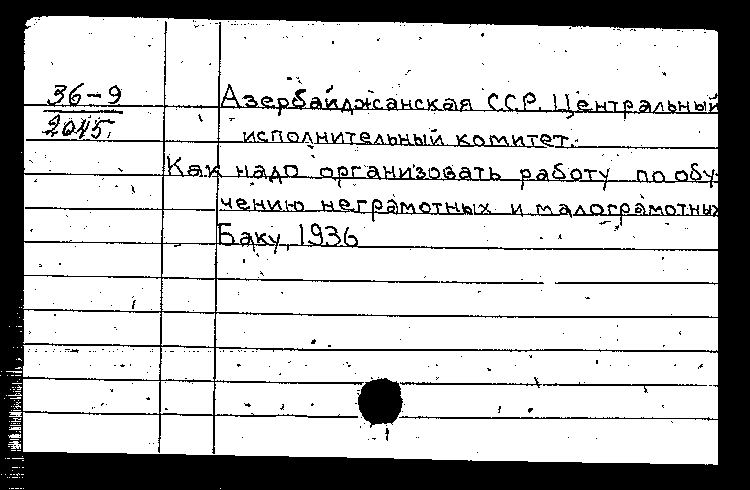 36-9
2045.
Азербайджанская ССР. Центральный
исполнительный комитет.
Как надо организовать работу по обу-
чению неграмотных и малограмотных
Баку, 1936